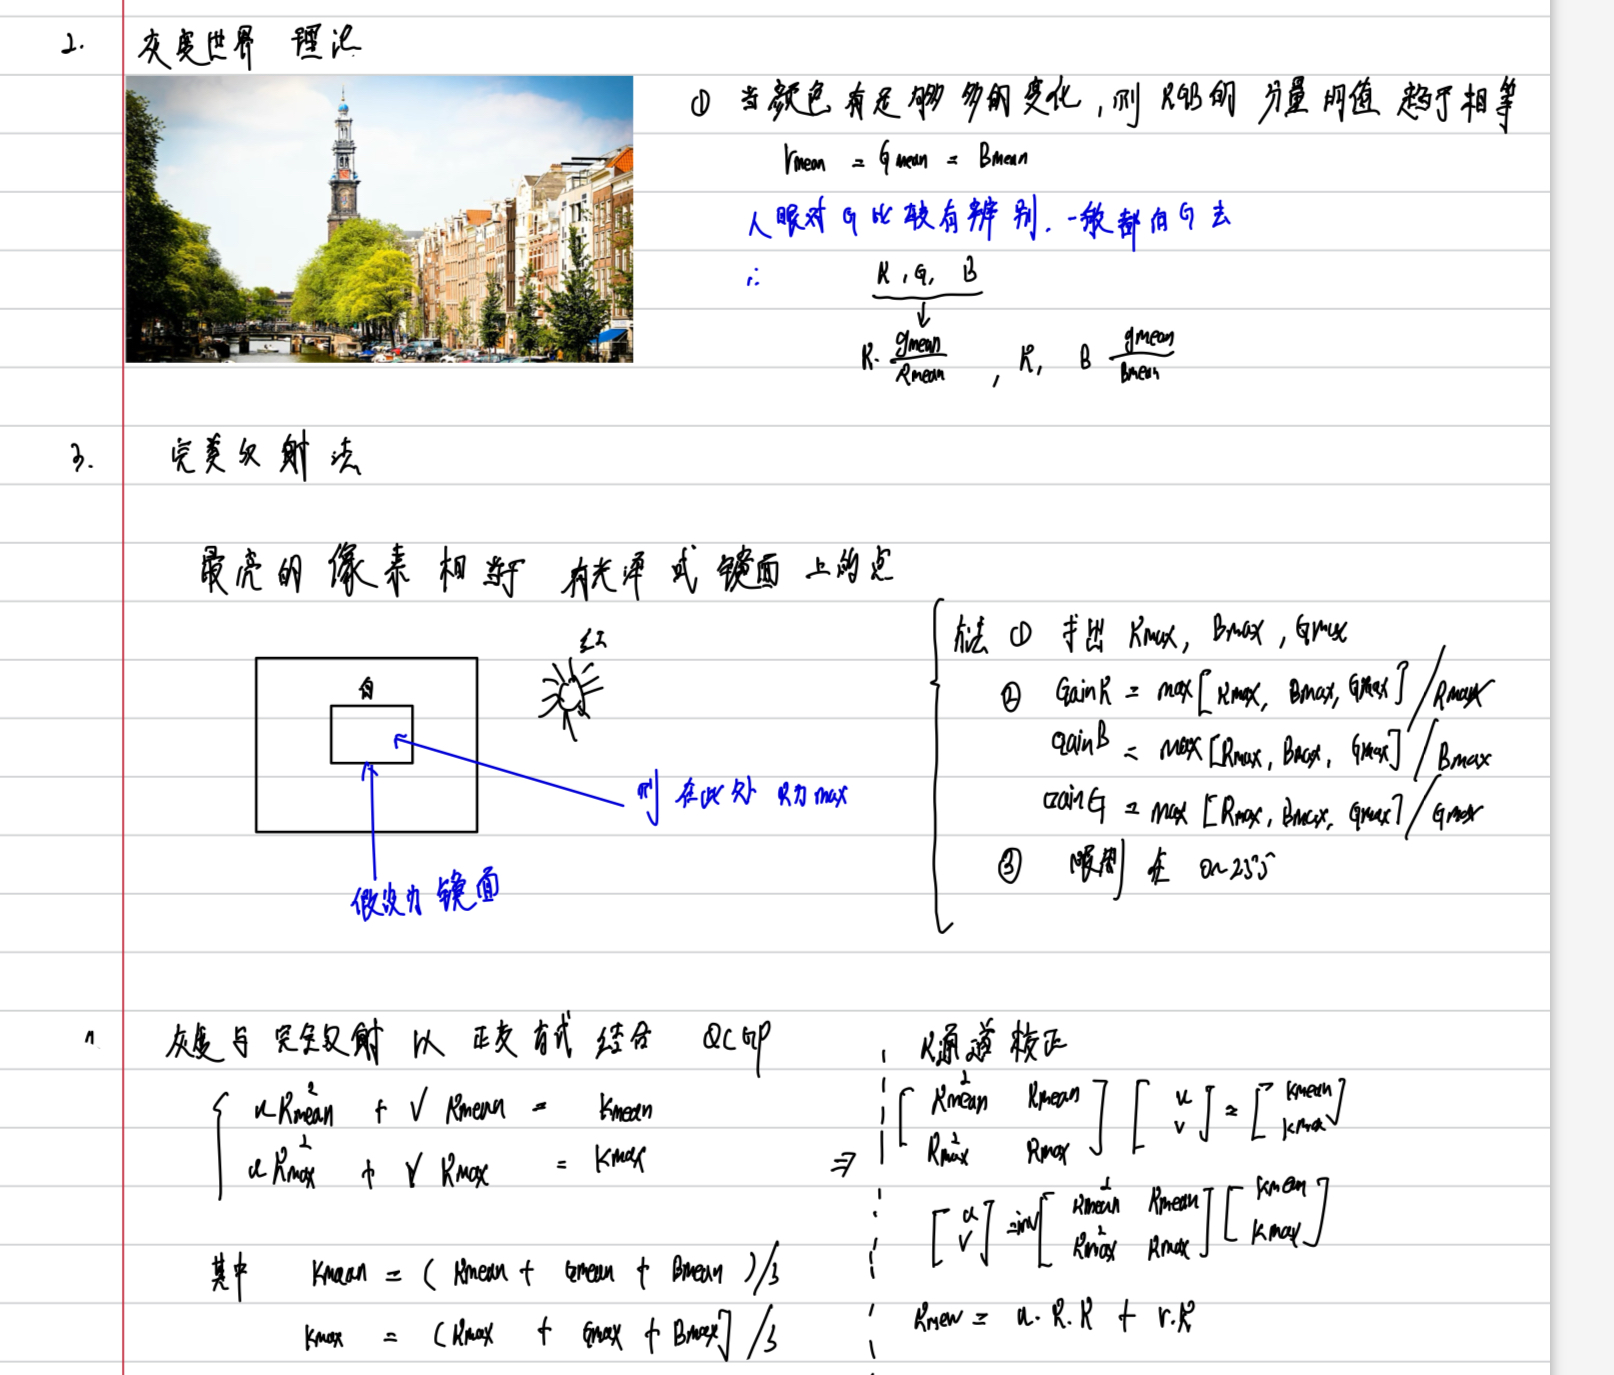 2. 灰度世界 理论
① 当颜色有足够多的变化,则 RGB的 分量均值 趋于相等
rmean = Gmean = Bmean
人眼对G比较有辨别.一般都向G去
∴ R,G,B
R·gmean/Rmean , R, B gmean/Bmean
3. 完美反射法
最亮的像素相当于 有光泽或镜面上的点
红
白
则在此处 R为max
假设为镜面
方法 ① 求出 Rmax, Bmax, Gmax
② GainR = max[Rmax, Bmax, Gmax] / Rmax
GainB = max[Rmax, Bmax, Gmax] / Bmax
GainG = max[Rmax, Bmax, Gmax] / Gmax
③ 限制在 0~255
灰度与完全反射以正交方式结合 QCGP
uRmean² + V Rmean = Kmean
uRmax² + V Rmax = Kmax
其中 Kmean = (Rmean + Gmean + Bmean)/3
Kmax = (Rmax + Gmax + Bmax]/3
⇒ R通道校正
[Rmean² Rmean
Rmax² Rmax] [u
v] = [Kmean
Kmax]
[u
V] = inv[Rmean² Rmean
Rmax² Rmax] [Kmean
Kmax]
Rnew = u·R·R + v·R